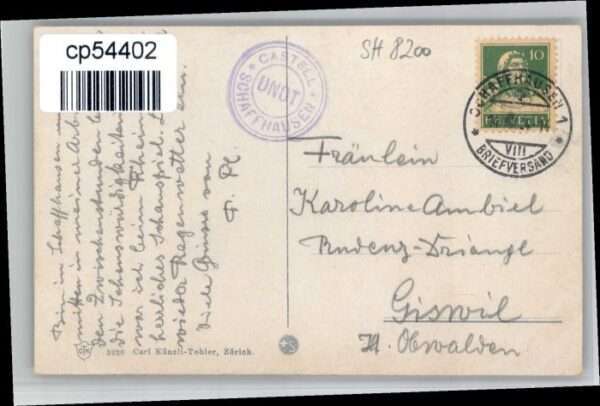 cp54402
Bin in Schaffhausen u
mitten in meiner Arb
den Zwischenstunden be
die Sehenswürdigkeiten
war ich beim Rhein
herrliches Schauspiel. L
wieder Regenwetter ein.
Viele Grüsse von
F. Pl.
CASTELL
UNOT
SCHAFFHAUSEN
SH 8200
10
HELVETIA
SCHAFFHAUSEN 1
VIII
BRIEFVERSAND
Fräulein
Karoline Ambiel
Rudenz-Triangel
Giswil
Obwalden
3926 Carl Künzli-Tobler, Zürich.